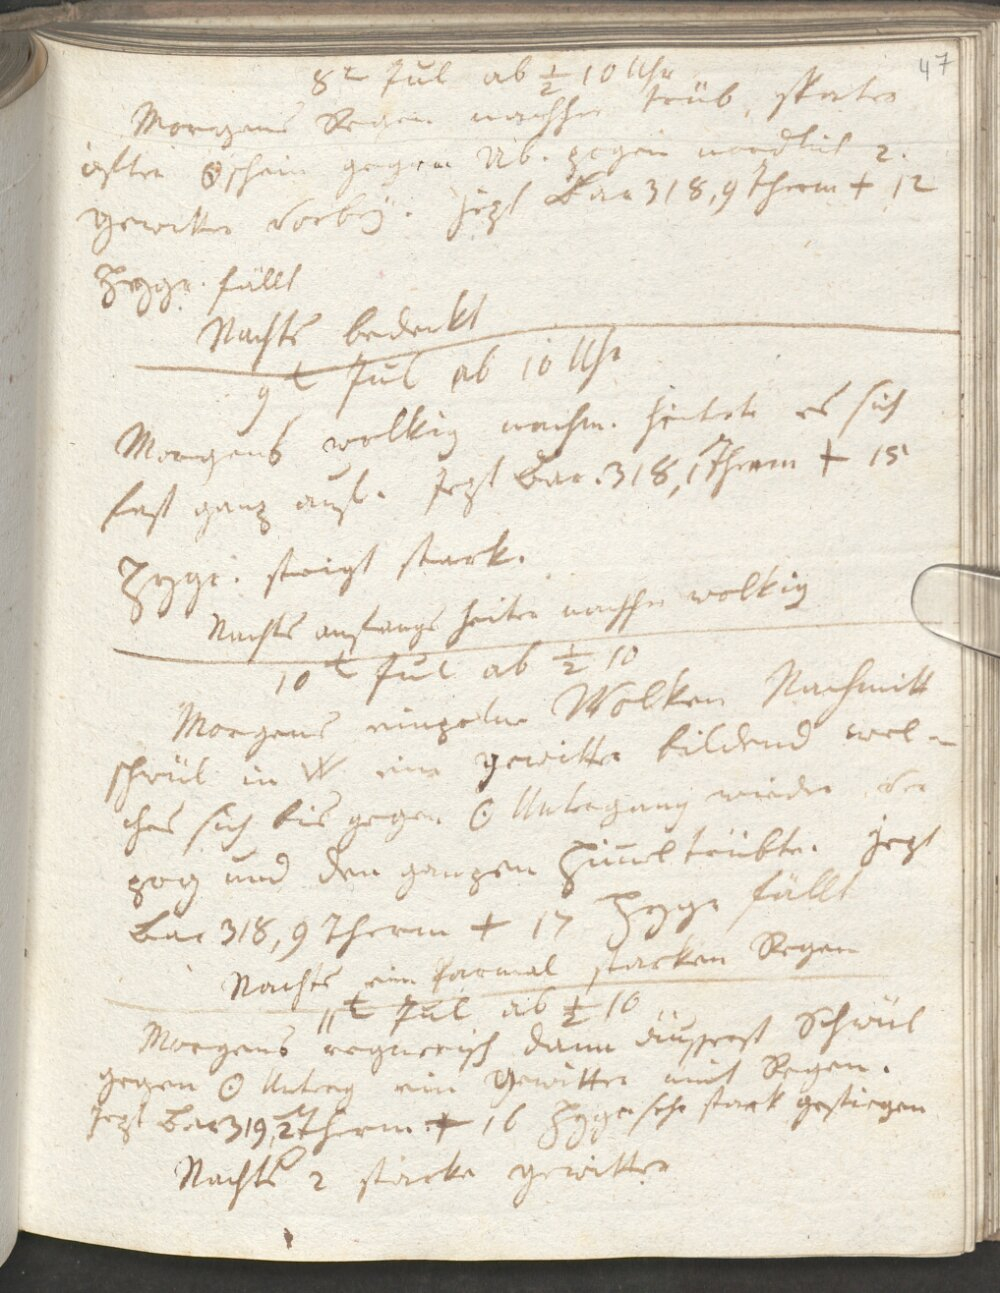 47
8t Jul ab ½ 10 Uhr
Morgens Regen nachher trüb, später
öfter ☉schein gegen Ab. zogen nordlich 2.
gewitter vorbey. Jezt Bar 318,9 Therm + 12
Hygr. fällt
Nachts bedenkt
9t Jul ab 10 Uhr
Morgens wolkig nachm. heiterte es sich
fast ganz aus. Jezt Bar. 318,1 Therm + 15
Hygr. steigt stark.
Nachts anfangs heiter nachher wolkig
10t Jul ab ½ 10
Morgens einzelne Wolken Nachmitt
schwül in W ein gewitter bildend wel-
ches sich bis gegen ☉ Untergang wieder ver
zog und den ganzen Himel trübte. Jezt
Bar 318,9 Therm + 17 Hygr fällt
Nachts ein parmal starken Regen
11t Jul ab ½ 10
Morgens regnerisch dann äusserst Schwül
gegen ☉ Unterg ein Gewitter mit Regen.
Jezt Bar 319,2 Therm. + 16 Hygr sehr stark gestiegen
Nachts 2 starke gewitter